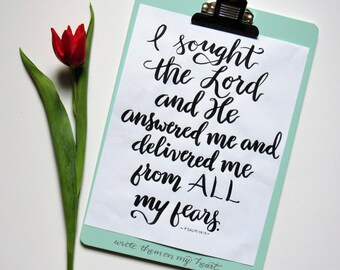 I sought
the Lord
and He
answered me and
delivered me
from ALL
my fears.
wrote them on my heart